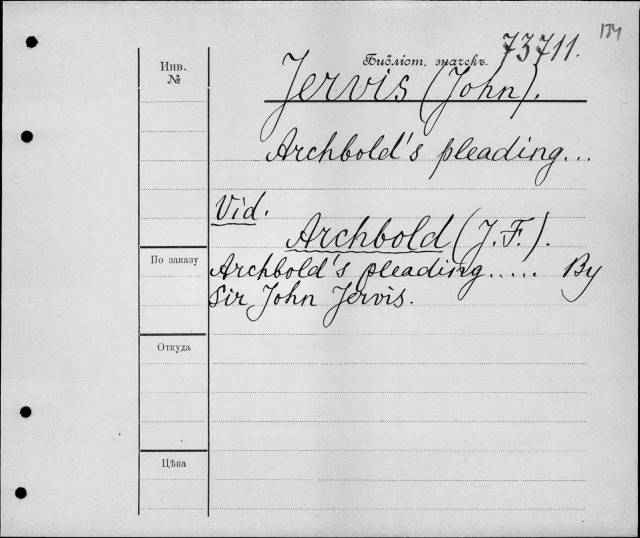 184
73711.
Инв.
№
Библіот. значекъ.
Jervis (John).
Archbold's pleading...
Vid.
Archbold (J. F.).
По заказу
Archbold's pleading..... By
Sir John Jervis.
Откуда
Цѣна